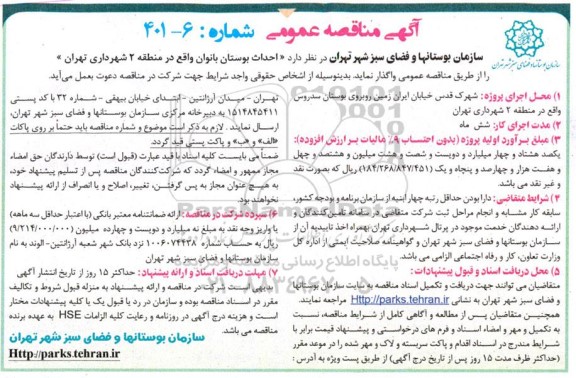 آگهی مناقصه عمومی شماره : ۶- ۴۰۱
سازمان بوستانها و فضای سبز شهر تهران
سازمان بوستانها و فضای سبز شهر تهران در نظر دارد « احداث بوستان بانوان واقع در منطقه ۲ شهرداری تهران »
را از طریق مناقصه عمومی واگذار نماید. بدینوسیله از اشخاص حقوقی واجد شرایط جهت شرکت در مناقصه دعوت بعمل می‌آید.
۱) محل اجرای پروژه: شهرک قدس خیابان ایران زمین روبروی بوستان سدروس
واقع در منطقه ۲ شهرداری تهران
۲) مدت اجرای کار: شش ماه
۳) مبلغ برآورد اولیه پروژه (بدون احتساب ۹٪ مالیات بر ارزش افزوده):
یکصد هشتاد و چهار میلیارد و دویست و شصت و هشت میلیون و هشتصد و چهل
و هفت هزار و چهارصد و پنجاه و یک (۱۸۴/۲۶۸/۸۴۷/۴۵۱) ریال که بصورت نقد
و غیر نقد می باشد.
۴) شرایط متقاضی: دارا بودن حداقل رتبه چهار ابنیه از سازمان برنامه و بودجه کشور،
سابقه کار مشابه و انجام مراحل ثبت شرکت متقاضی در سامانه تامین‌کنندگان و
ارائه دهندگان خدمت موجود در پرتال شهرداری تهران بهمراه اخذ تاییدیه آن از
سازمان بوستانها و فضای سبز شهر تهران و گواهینامه صلاحیت ایمنی از اداره کل
وزارت تعاون، کار و رفاه اجتماعی الزامی می باشد.
۵) محل دریافت اسناد و قبول پیشنهادات:
متقاضیان می توانند جهت دریافت و تکمیل اسناد مناقصه به سایت سازمان بوستانها
و فضای سبز شهر تهران به نشانی Http://parks.tehran.ir مراجعه نمایند.
همچنین متقاضیان پس از مطالعه و آگاهی کامل از شرایط مناقصه، نسبت
به تکمیل و مهر و امضاء اسناد و فرم های درخواستی و پیشنهاد قیمت برابر با
شرایط مندرج در اسناد اقدام و پاکت سربسته و لاک و مهر شده را در موعد مقرر
(حداکثر ظرف مدت ۱۵ روز پس از تاریخ درج آگهی) از طریق پست ویژه به آدرس :
تهران - میدان آرژانتین - ابتدای خیابان بیهقی - شماره ۳۲ با کد پستی
۱۵۱۴۸۴۵۴۱۱ به دبیرخانه مرکزی سازمان بوستانها و فضای سبز شهر تهران،
ارسال نمایند . لازم به ذکر است موضوع و شماره مناقصه باید حتماً بر روی پاکات
«الف» و «ب» و پاکت پستی قید گردد.
ضمناً می بایست کلیه اسناد با قید عبارت (قبول است) توسط دارندگان حق امضاء
مجاز ممهور و امضاء گردد که شرکت‌کنندگان مناقصه پس از تسلیم پیشنهاد خود،
به هیچ عنوان مجاز به پس گرفتن، تغییر، اصلاح و یا انصراف از ارائه پیشنهاد
نخواهند بود.
۶) سپرده شرکت در مناقصه : ارائه ضمانتنامه معتبر بانکی (با اعتبار حداقل سه ماهه)
یا واریز وجه نقد به مبلغ نه میلیارد و دویست و چهارده میلیون (۹/۲۱۴/۰۰۰/۰۰۰)
ریال به حساب شماره ۱۰۰۶۰۷۴۴۳۸ نزد بانک شهر شعبه آرژانتین- الوند به نام
سازمان بوستانها و فضای سبز شهر تهران
۷) مهلت دریافت اسناد و ارائه پیشنهاد : حداکثر ۱۵ روز از تاریخ انتشار آگهی
بدیهی است شرکت در مناقصه و ارائه پیشنهاد به منزله قبول شروط و تکالیف
مقرر در اسناد مناقصه بوده و سازمان در رد یا قبول یک یا کلیه پیشنهادات مختار
است و هزینه درج آگهی در روزنامه و رعایت کلیه الزامات HSE به عهده برنده
مناقصه می باشد.
سازمان بوستانها و فضای سبز شهر تهران
Http://parks.tehran.ir